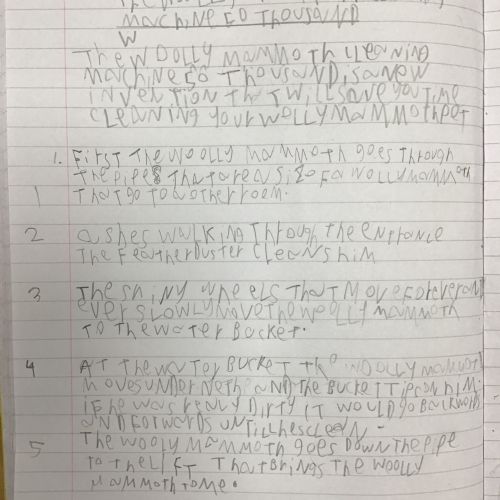 machine 50 thousand
W
The woolly mammoth cleaning
machine 50 thousand, is a new
invention that will save you time
cleaning your wolly mammoth pet
1. First the woolly mammoth goes through
the pipes that are a size of a wolly mammoth
1 That go to another room.
2 ashes walking through the entrance
The feather duster cleans him
3 The shiny wheels that move forever and
ever slowly move the woolly mammoth
to the water bucket.
4 At the water bucket the woolly mammoth
moves underneth and the bucket tips on him.
if he was realy dirty it would go backwords
and forwards untill hes clean-
5 The wooly mammoth goes down the pipe
to the lift that brings the woolly
mammoth to me.